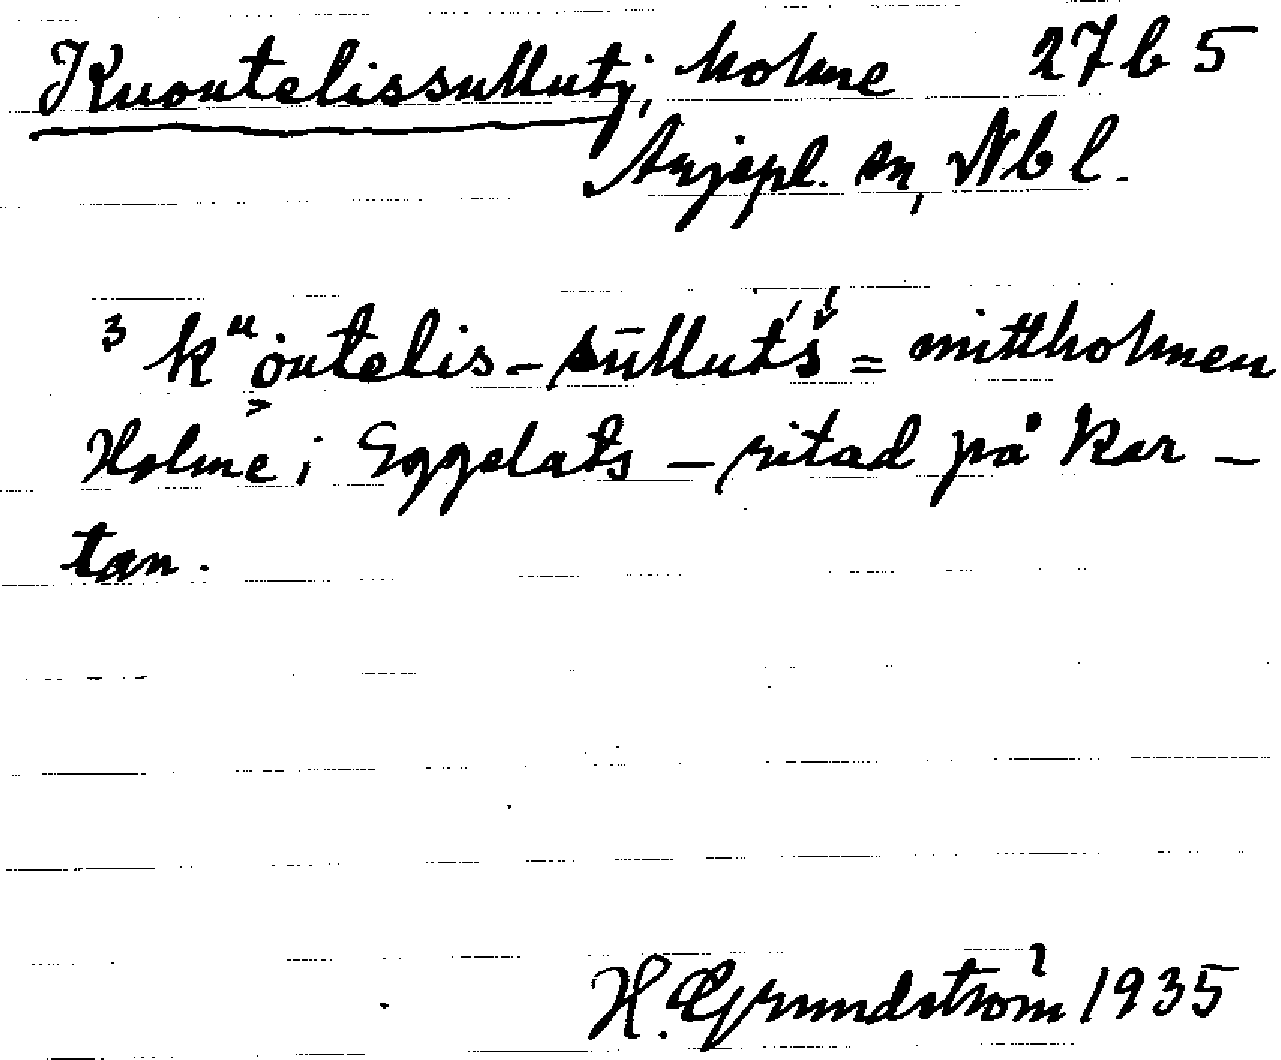 Kuoutelissullutj, holme 27 b 5
Arjepl. sn, Nbl.
³ kᵘoutelis-sūlluts = mittholmen
Holme i Eggelats – ritad på kar-
tan.
H. Grundström 1935